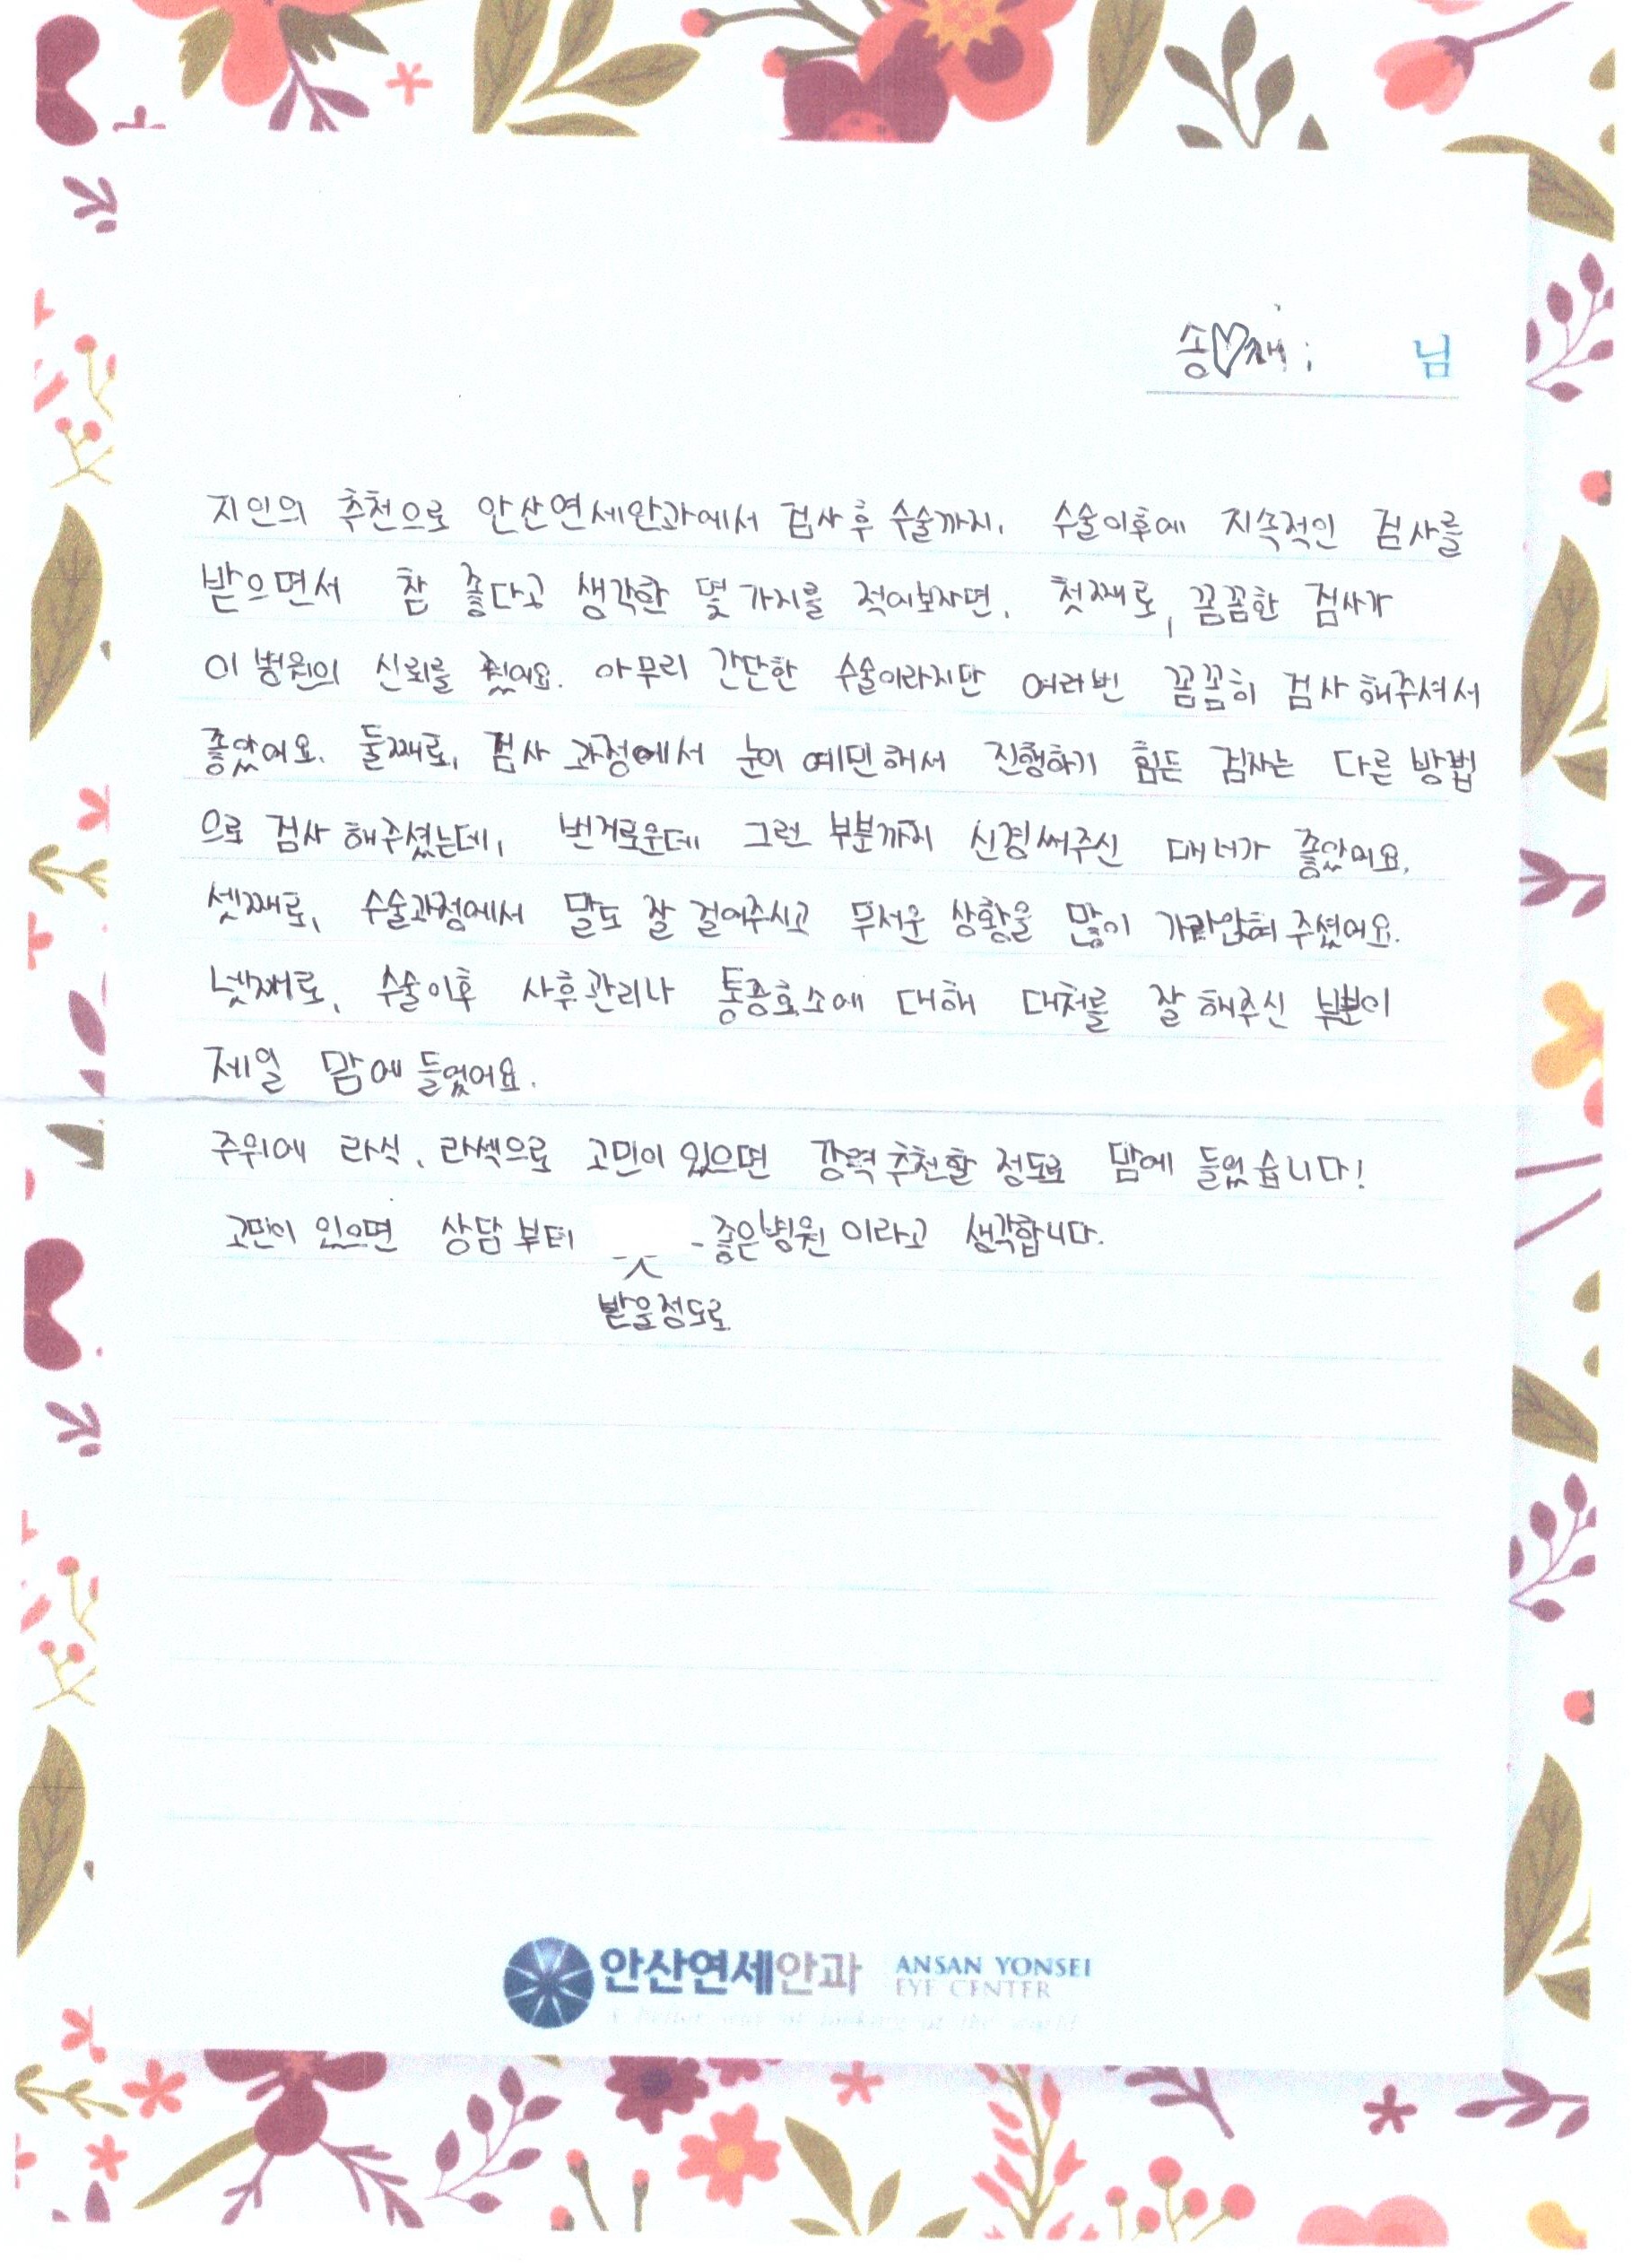 송♡채 님
지인의 추천으로 안산연세안과에서 검사후 수술까지, 수술이후에 지속적인 검사를
받으면서 참 좋다고 생각한 몇가지를 적어보자면, 첫째로, 꼼꼼한 검사가
이 병원의 신뢰를 줬어요. 아무리 간단한 수술이라지만 여러번 꼼꼼히 검사해주셔서
좋았어요. 둘째로, 검사 과정에서 눈이 예민해서 진행하기 힘든 검사는 다른 방법
으로 검사 해주셨는데, 번거로운데 그런 부분까지 신경써주신 매너가 좋았어요.
셋째로, 수술과정에서 말도 잘 걸어주시고 무서운 상황을 많이 가라앉혀 주셨어요.
넷째로, 수술이후 사후관리나 통증호소에 대해 대처를 잘 해주신 부분이
제일 맘에 들었어요.
주위에 라식, 라섹으로 고민이 있으면 강력추천할 정도로 맘에 들었습니다!
고민이 있으면 상담부터 좋은병원이라고 생각합니다.
받을정도로
안산연세안과 ANSAN YONSEI
EYE CENTER